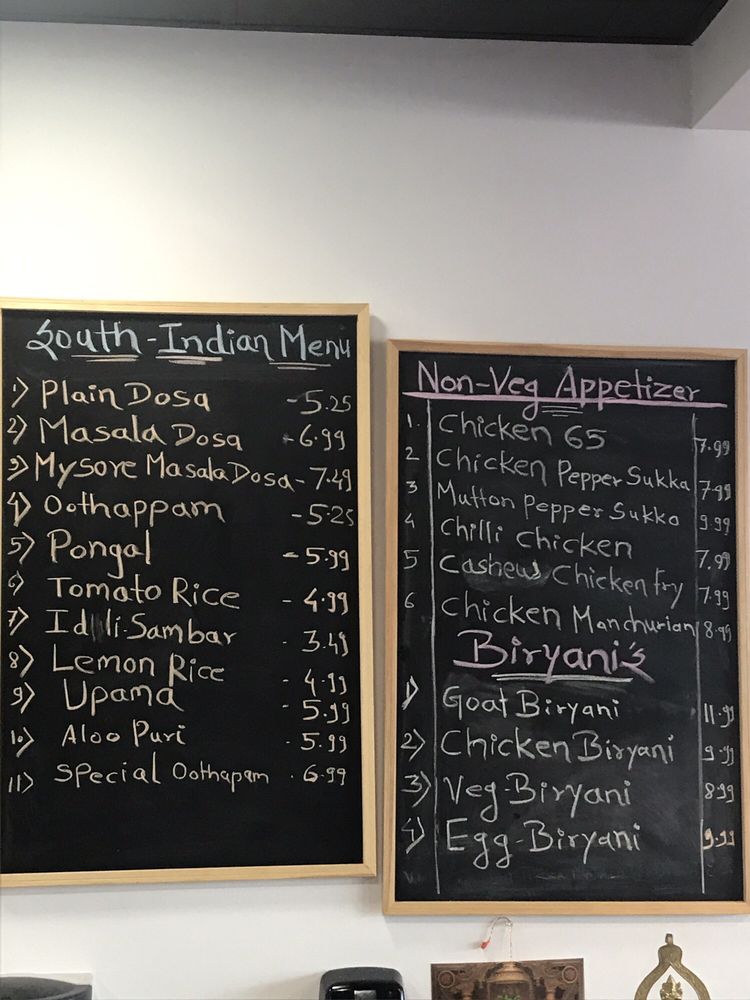 South-Indian Menu
1) Plain Dosa - 5.25
2) Masala Dosa - 6.99
3) Mysore Masala Dosa - 7.49
4) Oothappam - 5.25
5) Pongal - 5.99
6) Tomato Rice - 4.99
7) Idli-Sambar - 3.49
8) Lemon Rice - 4.99
9) Upama - 5.99
10) Aloo Puri - 5.99
11) Special Oothapam - 6.99
Non-Veg Appetizer
1. Chicken 65 7.99
2 Chicken Pepper Sukka 7.99
3 Mutton Pepper Sukka 9.99
4 Chilli Chicken 7.99
5 Cashew Chicken Fry 7.99
6 Chicken Manchurian 8.99
Biryani's
1) Goat Biryani 11.99
2) Chicken Biryani 9.99
3) Veg-Biryani 8.99
4) Egg-Biryani 9.99